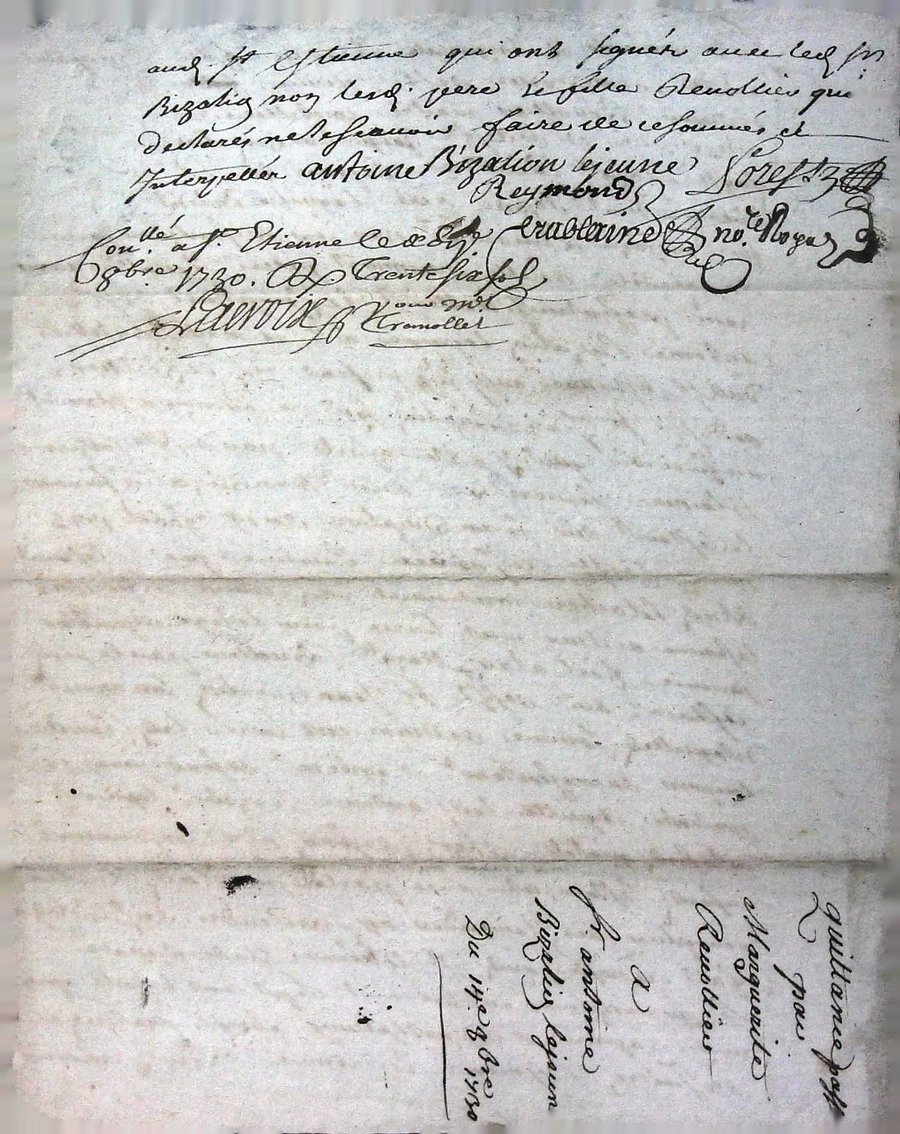 aud. st. Estienne qui ont signés avec led. sr.
Bizalion non lesd. pere et fille Revollier qui
declarés ne le scavoir faire de ce sommés et
Interpellés antoine Bizalion lejeune
Reymond
Con.llé a St. Etienne le
8bre. 1730. Trente six sols
Lacroix
Tramollet
no.re Royal
quittance pass
par
Marguerite
Revollier
a
sr. antoine
Bizalion lejeun
Du 14e. 8bre 1730